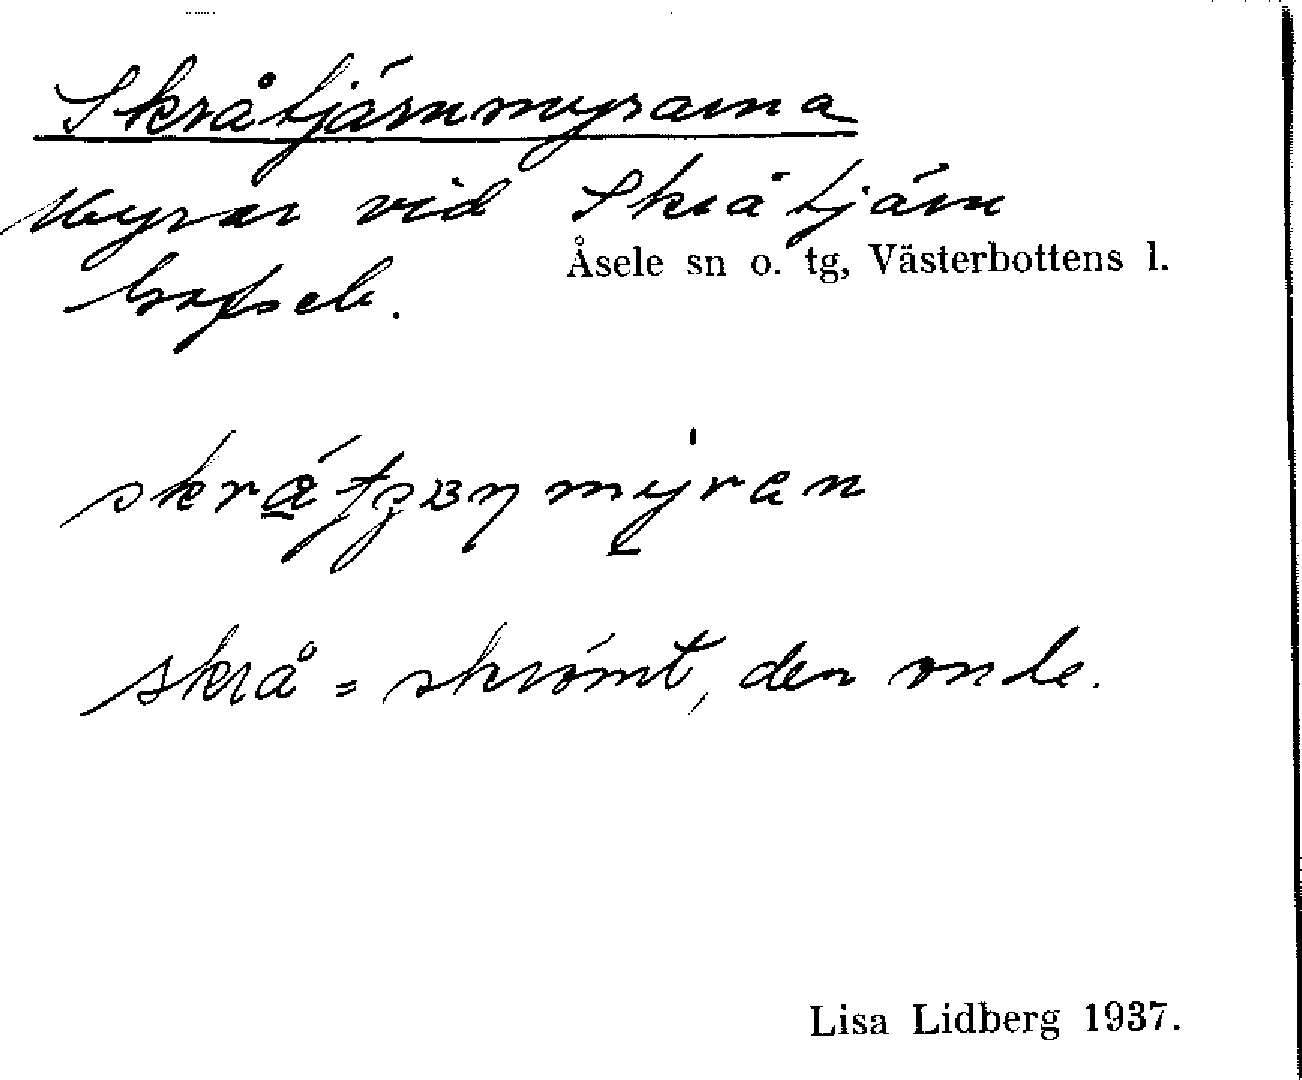 Skråtjärnmyrarna
Myrar vid Skråtjärn
Åsele sn o. tg, Västerbottens l.
Gafsele.
skrå = skrömt, den onde.
Lisa Lidberg 1937.